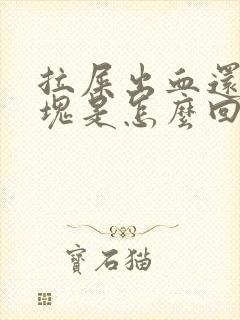 拉屎出血還
塊是怎麼回
寶石猫